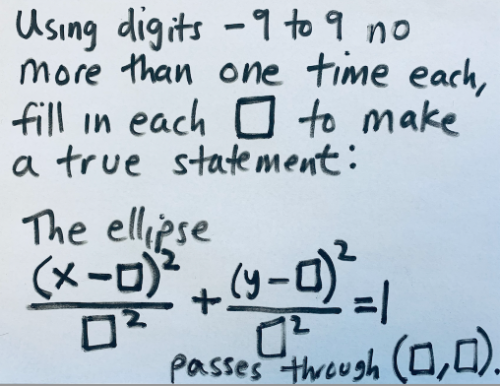 Using digits -9 to 9 no
more than one time each,
fill in each □ to make
a true statement:
The ellipse
(x-□)²/□² + (y-□)²/□² = 1
passes through (□,□).